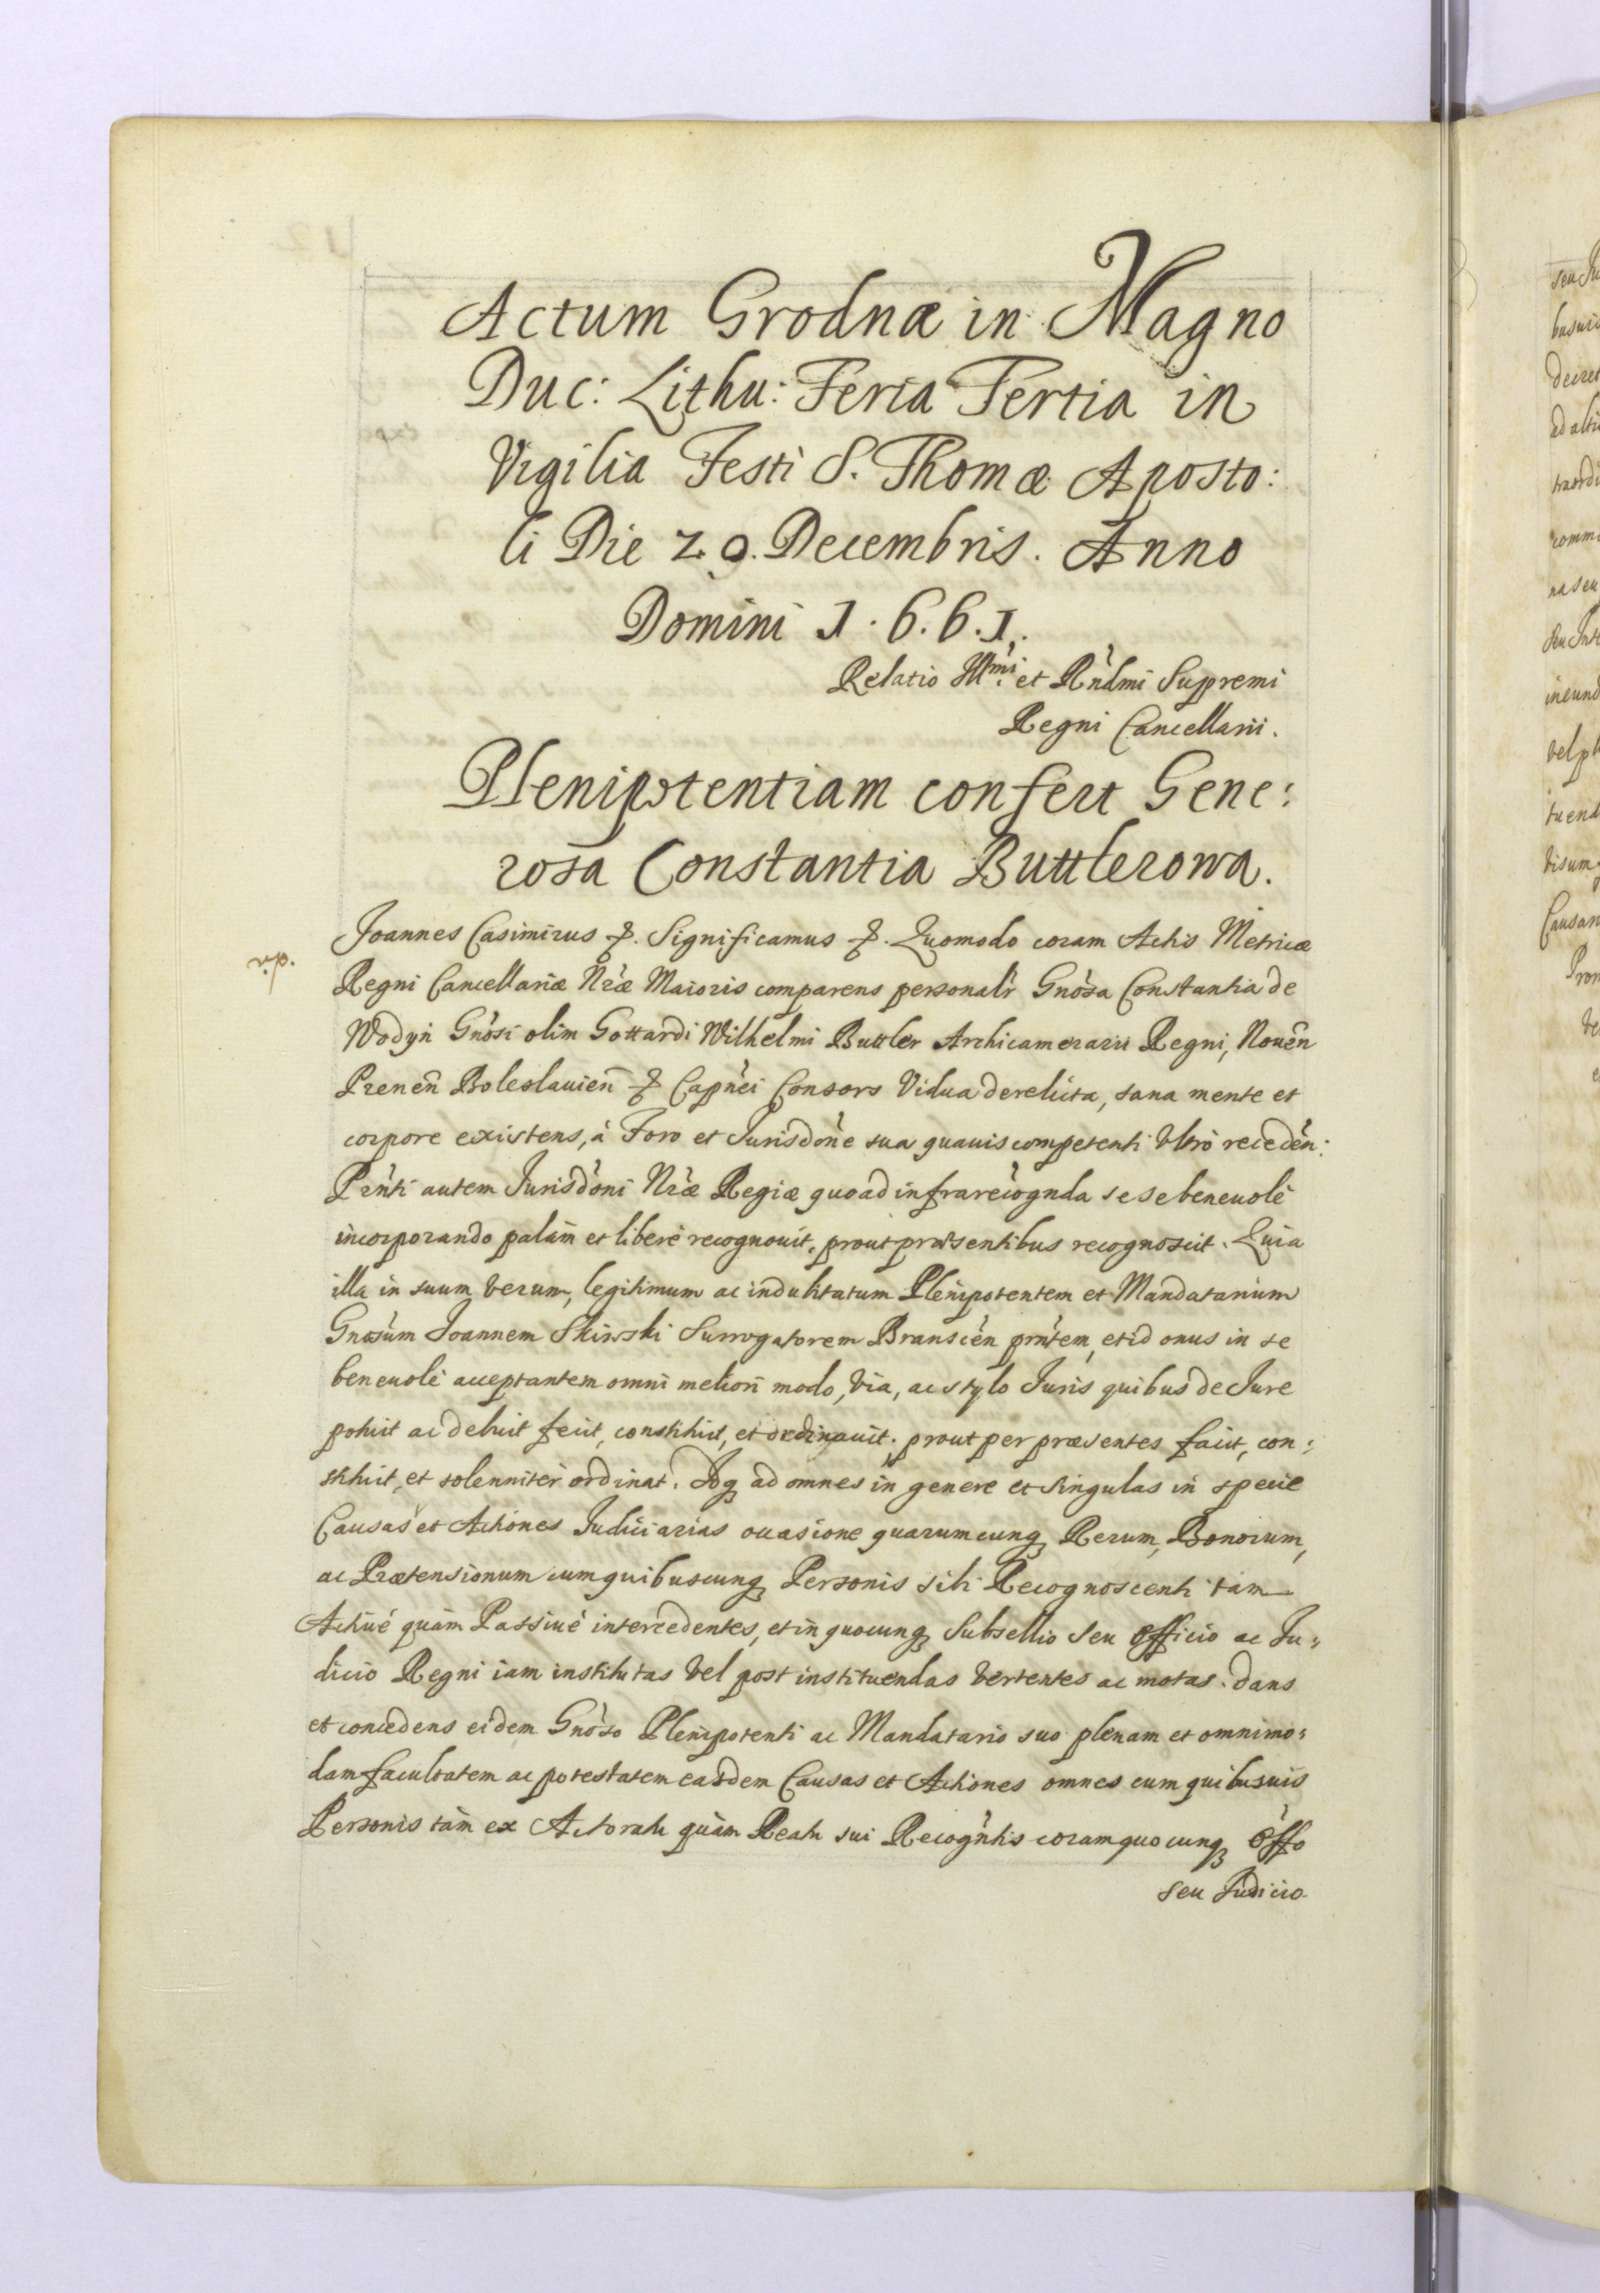 Actum Grodnæ in Magno
Duc: Lithu: Feria Tertia in
Vigilia Festi S. Thomæ Aposto:
li Die 20. Decembris. Anno
Domini 1.6.6.1.
Relatio Illmi et Rndmi Supremi
Regni Cancellarii.
Plenipotentiam confert Gene:
rosa Constantia Buttlerowa.
Joannes Casimirus &. Significamus &. Quomodo coram Actis Metricæ
Regni Cancellariæ Nræ Maioris comparens personalr Gnosa Constantia de
Wodyn Gnosi olim Gottardi Wilhelmi Buttler Archicamerarii Regni, Nouen
Prenen Boleslauien & Capnei Consors Vidua derelicta, sana mente et
corpore existens, à Foro et Jurisdone sua quauis competenti Vltrò receden:
Prnti autem Jurisdoni Nræ Regiæ quoad infrarecognda sese beneuolè
incorporando palàm et liberè recognouit, prout præsentibus recognoscit. Quia
illa in suum verum, legitimum ac indubitatum Plenipotentem et Mandatarium
Gnosum Joannem Skiwski Surrogatorem Branscen prntem, et id onus in se
beneuolè acceptantem omni meliori modo, via, ac stylo Juris quibus de Jure
potuit ac debuit fecit, constituit, et ordinauit. prout per præsentes facit, con:
stituit, et solenniter ordinat. Idq ad omnes in genere et singulas in specie
Causas et Actiones Judiciarias occasione quarumcunq Rerum, Bonorum,
ac Prætensionum cum quibuscunq Personis sibi Recognoscenti tam
Actiuè quàm Passiuè intercedentes, et in quocunq Subsellio seu Officio ac Ju:
dicio Regni iam institutas vel post instituendas vertentes ac motas. dans
et concedens eidem Gnoso Plenipotenti ac Mandatario suo plenam et omnimo:
dam facultatem ac potestatem easdem Causas et Actiones omnes cum quibusuis
Personis tàm ex Actoratu quàm Reatu sui Recogntis coram quocunq Offo
seu Judicio
v.p.